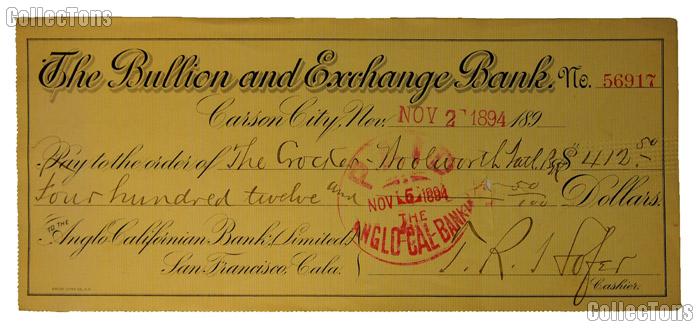 CollecTons
CollecTons
The Bullion and Exchange Bank. No. 56917
Carson City, Nev. NOV 2 1894 189
Pay to the order of The Crocker-Woolworth Natl Bk $412.50
Four hundred twelve and 50/100 Dollars.
TO THE
Anglo Californian Bank (Limited)
San Francisco, Cala.
PAID
NOV 5 1894
THE
ANGLO-CAL BANK
T. R. Hofer
Cashier.
CollecTons
CollecTons